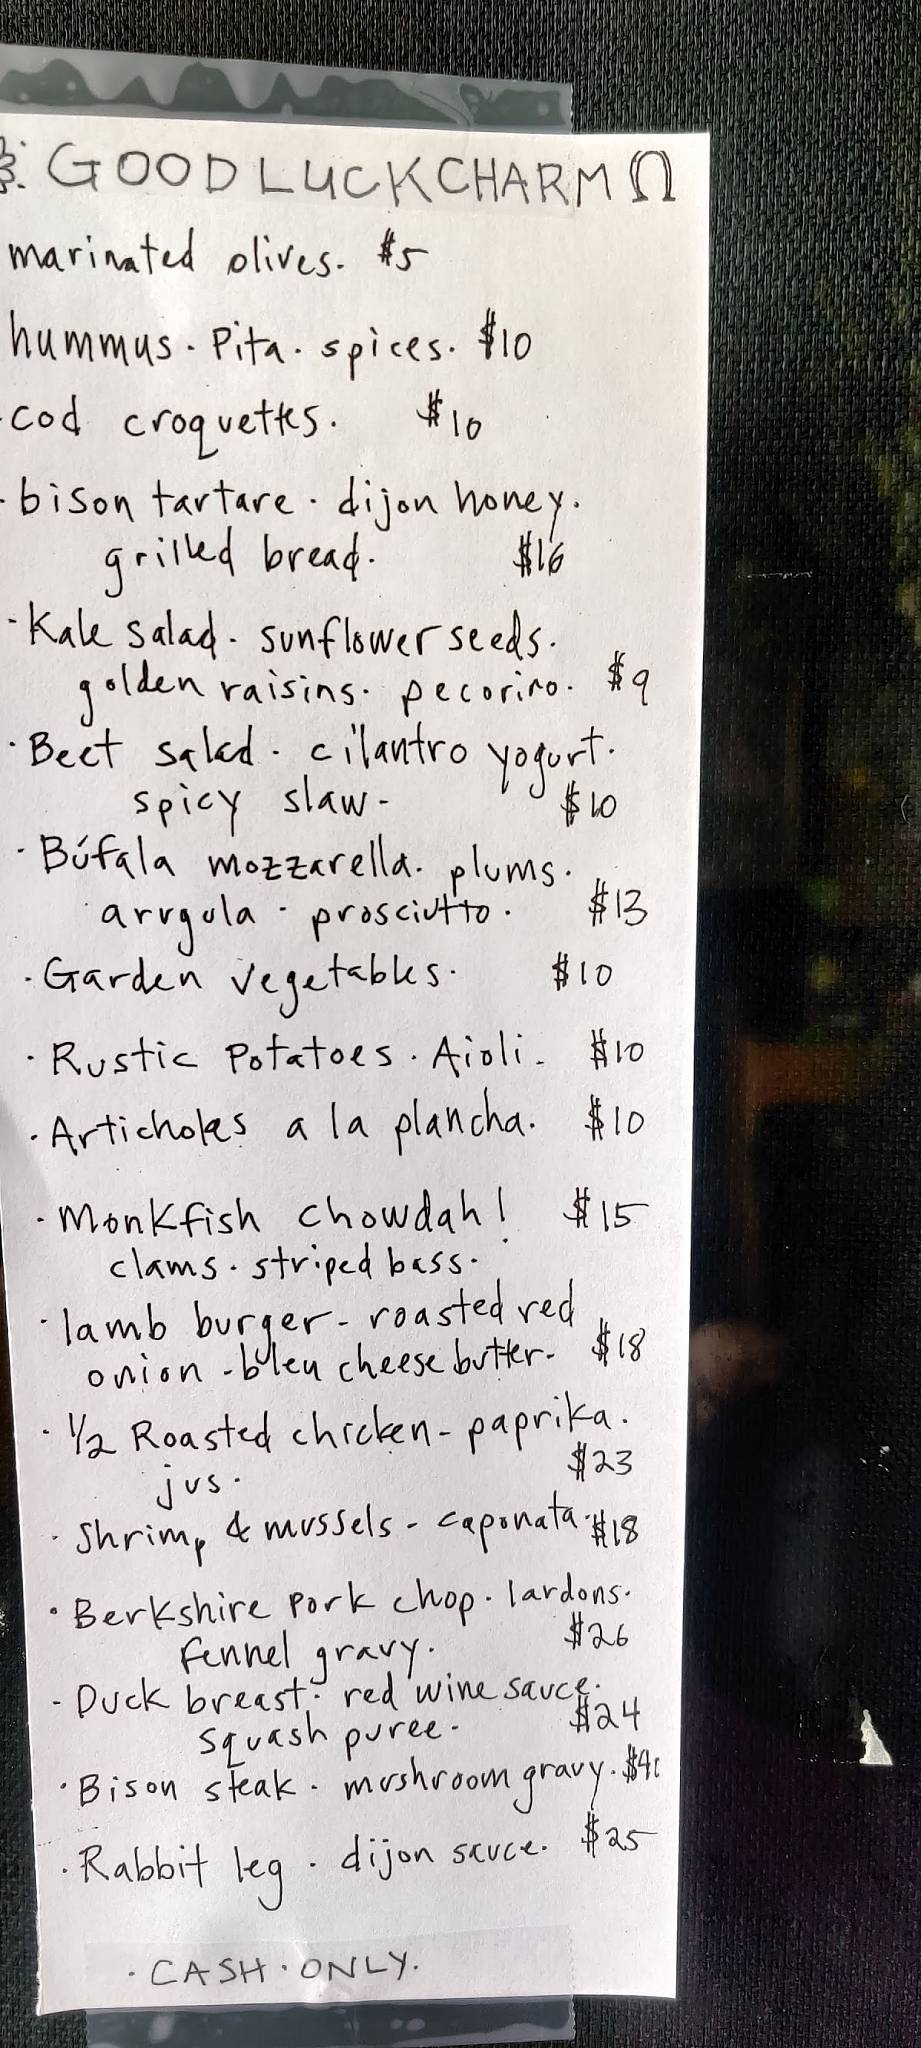 GOOD LUCK CHARM Ω
marinated olives. $5
hummus · Pita · spices. $10
· cod croquettes. $10
· bison tartare · dijon honey.
grilled bread. $16
· Kale salad · sunflower seeds.
golden raisins · pecorino. $9
· Beet salad · cilantro yogurt.
spicy slaw - $10
· Búfala mozzarella · plums.
arugula · prosciutto. $13
· Garden vegetables. $10
· Rustic Potatoes · Aioli - $10
· Artichokes a la plancha. $10
· Monkfish chowdah! $15
clams · striped bass.
· lamb burger - roasted red
onion - bleu cheese butter - $18
· 1/2 Roasted chicken - paprika.
jus. $23
· Shrimp & mussels - caponata · $18
· Berkshire Pork chop · lardons.
fennel gravy. $26
- Duck breast · red wine sauce.
squash puree. $24
· Bison steak · mushroom gravy.
· Rabbit leg · dijon sauce. $25
· CASH · ONLY.